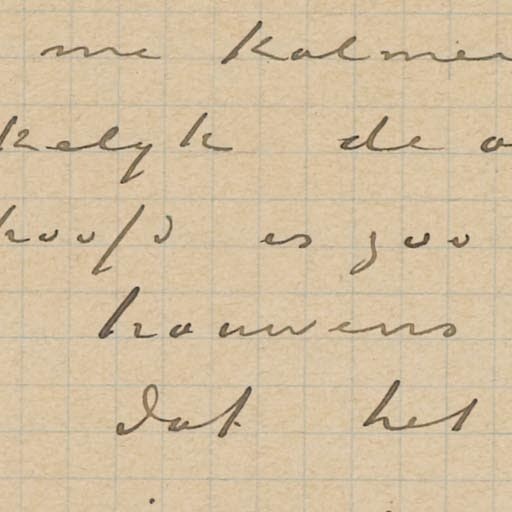 me kalmer
kelyk de o
hoofd is zoo
trouwens
dat het